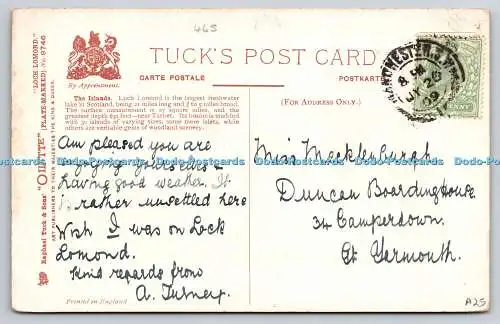 465
TUCK'S POST CARD
CARTE POSTALE
POSTKARTE
By Appointment.
(FOR ADDRESS ONLY.)
The Islands. Loch Lomond is the largest freshwater
lake in Scotland, being 21 miles long and 7 to 5 miles broad.
The surface measurement is 27 square miles, and the
greatest depth 630 feet—near Tarbet. Its bosom is studded
with 30 islands of varying sizes, some mere islets, while
others are veritable gems of woodland scenery.
Am pleased you are
enjoying yourselves &
having good weather. It
is rather unsettled here
Wish I was on Lock
Lomond.
Kind regards from
A. Turney.
Miss Mecklenburgh
Duncan Boardinghouse
34 Camperdown.
Gt Yarmouth.
Printed in England
A25
Raphael Tuck & Sons' "OILETTE" [PLATE-MARKED] No. 9746 "LOCH LOMOND."
ART PUBLISHERS TO THEIR MAJESTIES THE KING & QUEEN.
MANCHESTER
Dodo-Postcard.com